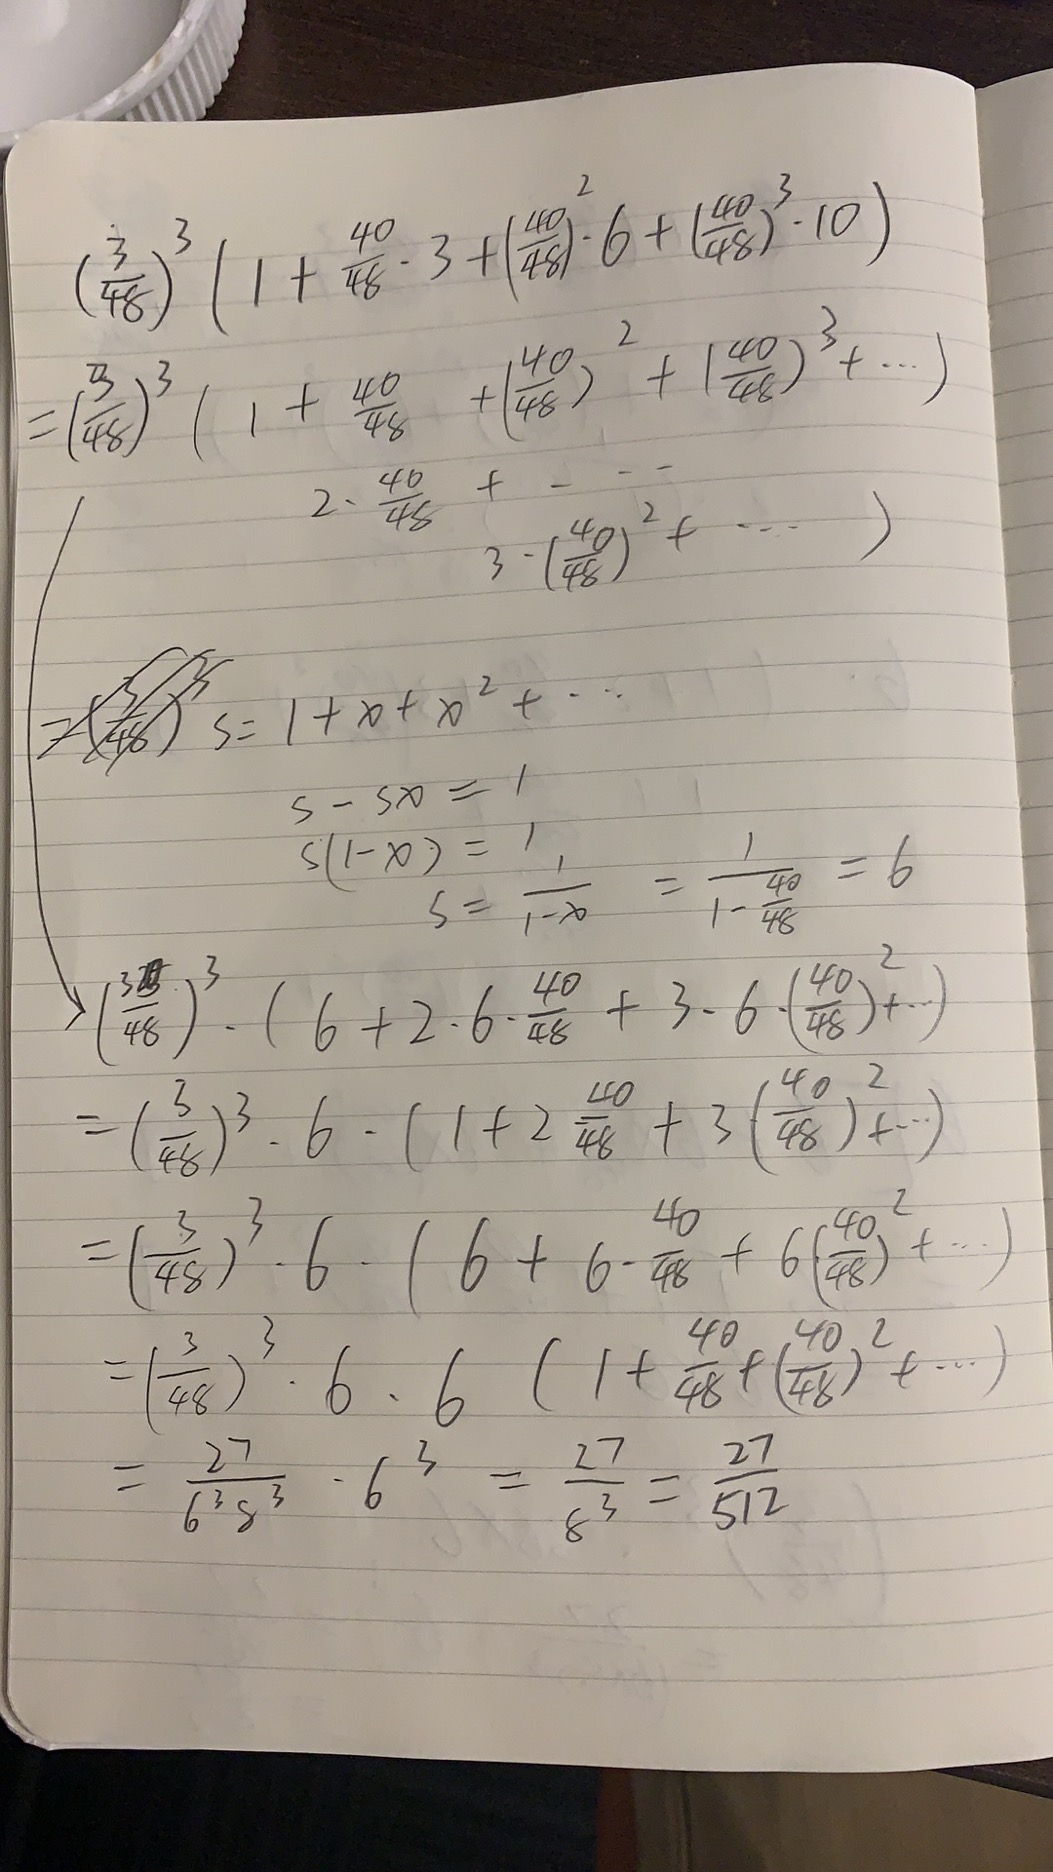 (3/48)^3 ( 1 + 40/48 · 3 + (40/48)^2 · 6 + (40/48)^3 · 10 )
= (3/48)^3 ( 1 + 40/48 + (40/48)^2 + (40/48)^3 + ··· )
2 · 40/48 + - - -
3 · (40/48)^2 + ··· )
= (3/48)^3 s = 1 + x + x^2 + ···
s - sx = 1
s(1-x) = 1
s = 1/(1-x) = 1/(1 - 40/48) = 6
(3/48)^3 · ( 6 + 2 · 6 · 40/48 + 3 · 6 · (40/48)^2 + ··· )
= (3/48)^3 · 6 · ( 1 + 2 40/48 + 3 (40/48)^2 + ··· )
= (3/48)^3 · 6 · ( 6 + 6 · 40/48 + 6 (40/48)^2 + ··· )
= (3/48)^3 · 6 · 6 ( 1 + 40/48 + (40/48)^2 + ··· )
= 27/(6^3 8^3) · 6^3 = 27/8^3 = 27/512